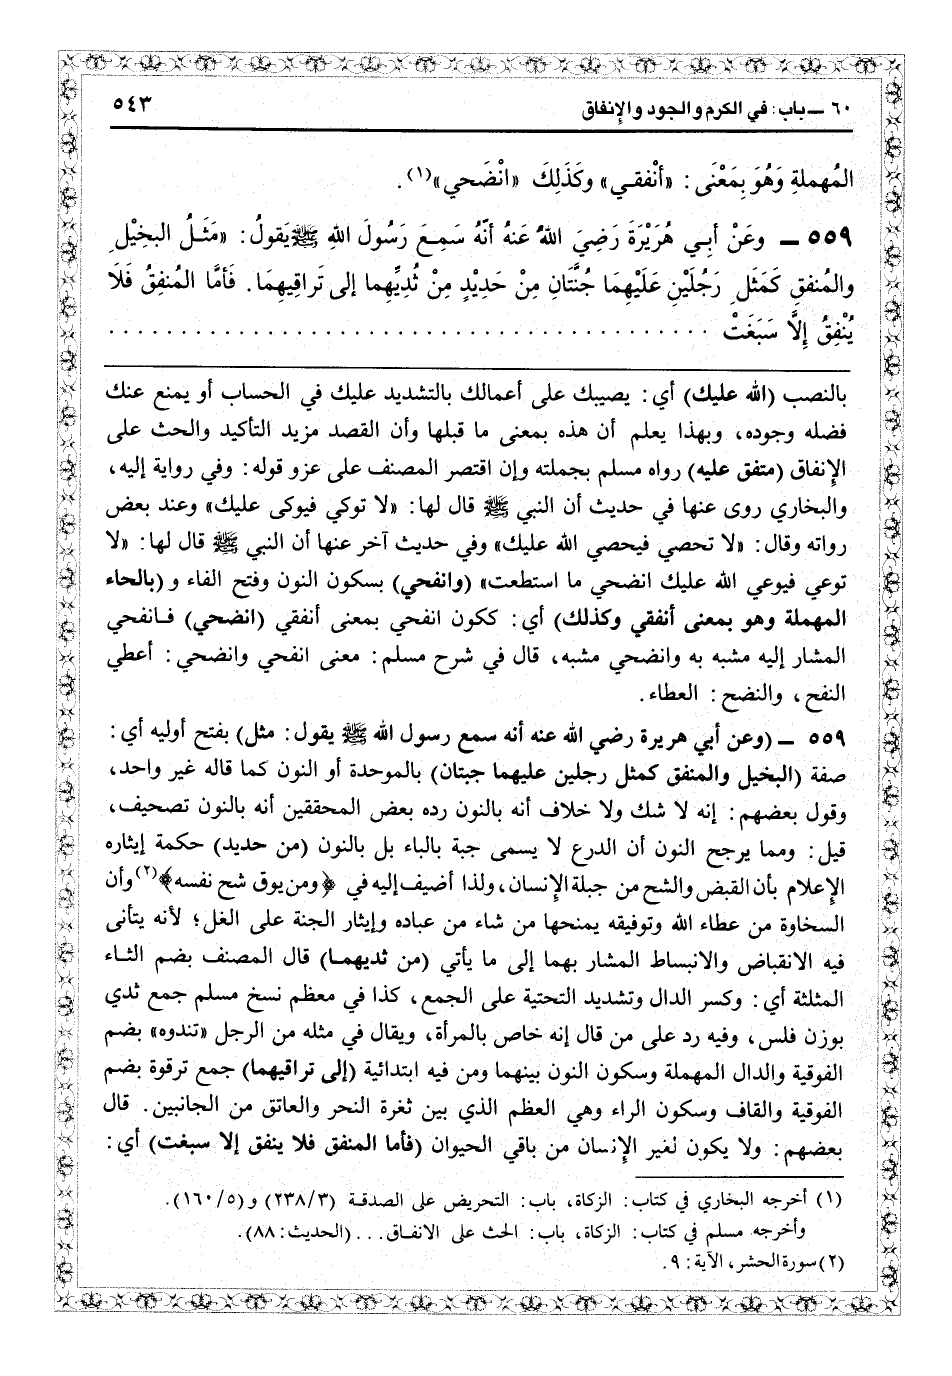 ٦٠ ــ باب: في الكرم والجود والإنفاق ٥٤٣
المُهملةِ وَهُوَ بِمَعْنَى: «أنْفقي» وكَذَلِكَ «انْضَحي»(١).
٥٥٩ ــ وعَنْ أبي هُرَيْرَةَ رَضِيَ اللهُ عَنهُ أنّهُ سَمِعَ رَسُولَ اللهِ ﷺ يَقولُ: «مَثَلُ البخِيْلِ
والمُنفقِ كَمَثَلِ رَجُلَيْنِ عَلَيْهِمَا جُنَّتَانِ مِنْ حَدِيْدٍ مِنْ ثُدِيِّهِما إلى تَراقِيهِمَا. فَأمَّا المُنفِقُ فَلَا
يُنْفِقُ إلَّا سَبَغَتْ . . . . . . . . . . . . . . . . . . . . . . . . . . . . . . . . . . . . . . . .
بالنصب (الله عليك) أي: يصيبك على أعمالك بالتشديد عليك في الحساب أو يمنع عنك
فضله وجوده، وبهذا يعلم أن هذه بمعنى ما قبلها وأن القصد مزيد التأكيد والحث على
الإنفاق (متفق عليه) رواه مسلم بجملته وإن اقتصر المصنف على عزو قوله: وفي رواية إليه،
والبخاري روى عنها في حديث أن النبي ﷺ قال لها: «لا توكي فيوكى عليك» وعند بعض
رواته وقال: «لا تحصي فيحصي الله عليك» وفي حديث آخر عنها أن النبي ﷺ قال لها: «لا
توعي فيوعي الله عليك انضحي ما استطعت» (وانفحي) بسكون النون وفتح الفاء و (بالحاء
المهملة وهو بمعنى أنفقي وكذلك) أي: ككون انفحي بمعنى أنفقي (انضحي) فانفحي
المشار إليه مشبه به وانضحي مشبه، قال في شرح مسلم: معنى انفحي وانضحي: أعطي
النفح، والنضح: العطاء.
٥٥٩ ــ (وعن أبي هريرة رضي الله عنه أنه سمع رسول الله ﷺ يقول: مثل) بفتح أوليه أي:
صفة (البخيل والمنفق كمثل رجلين عليهما جبتان) بالموحدة أو النون كما قاله غير واحد،
وقول بعضهم: إنه لا شك ولا خلاف أنه بالنون رده بعض المحققين أنه بالنون تصحيف،
قيل: ومما يرجح النون أن الدرع لا يسمى جبة بالباء بل بالنون (من حديد) حكمة إيثاره
الإعلام بأن القبض والشح من جبلة الإنسان، ولذا أضيف إليه في ﴿ومن يوق شح نفسه﴾(٢) وأن
السخاوة من عطاء الله وتوفيقه يمنحها من شاء من عباده وإيثار الجنة على الغل؛ لأنه يتأنى
فيه الانقباض والانبساط المشار بهما إلى ما يأتي (من ثديهما) قال المصنف بضم الثاء
المثلثة أي: وكسر الدال وتشديد التحتية على الجمع، كذا في معظم نسخ مسلم جمع ثدي
بوزن فلس، وفيه رد على من قال إنه خاص بالمرأة، ويقال في مثله من الرجل «تندوه» بضم
الفوقية والدال المهملة وسكون النون بينهما ومن فيه ابتدائية (إلى تراقيهما) جمع ترقوة بضم
الفوقية والقاف وسكون الراء وهي العظم الذي بين ثغرة النحر والعاتق من الجانبين. قال
بعضهم: ولا يكون لغير الإنسان من باقي الحيوان (فأما المنفق فلا ينفق إلا سبغت) أي:
(١) أخرجه البخاري في كتاب: الزكاة، باب: التحريض على الصدقة (٢٣٨/٣) و(١٦٠/٥).
وأخرجه مسلم في كتاب: الزكاة، باب: الحث على الانفاق... (الحديث: ٨٨).
(٢) سورة الحشر، الآية: ٩.